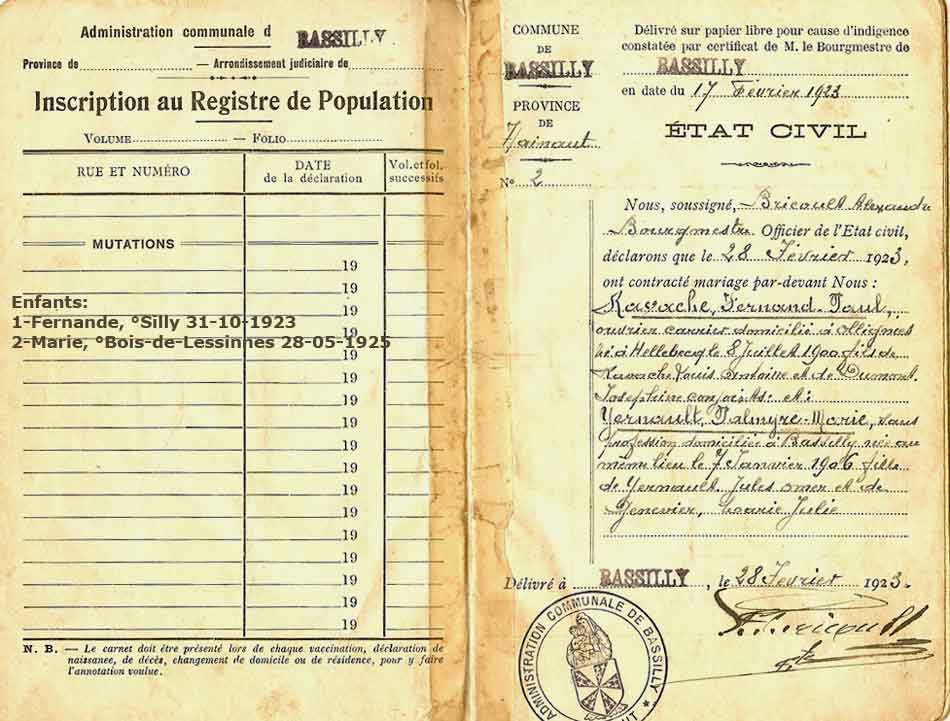 Administration communale d BASSILLY
Province de — Arrondissement judiciaire de
Inscription au Registre de Population
VOLUME — FOLIO
RUE ET NUMÉRO
DATE
de la déclaration
Vol. et fol.
successifs
MUTATIONS
19
19
Enfants:
1-Fernande, °Silly 31-10-1923
19
2-Marie, °Bois-de-Lessinnes 28-05-1925
19
19
19
19
19
19
19
19
19
19
19
19
19
19
N. B. — Le carnet doit être présenté lors de chaque vaccination, déclaration de
naissance, de décès, changement de domicile ou de résidence, pour y faire
l'annotation voulue.
COMMUNE
DE
BASSILLY
PROVINCE
DE
Hainaut
N° 2
Délivré sur papier libre pour cause d'indigence
constatée par certificat de M. le Bourgmestre de
BASSILLY
en date du 17 Février 1923
ÉTAT CIVIL
Nous, soussigné, Bricoult Alexandre
Bourgmestre Officier de l'Etat civil,
déclarons que le 28 Février 1923,
ont contracté mariage par-devant Nous :
Ravache, Fernand-Paul,
ouvrier carrier domicilié à Ollignies
né à Hellebecq le 8 Juillet 1900 fils de
Ravache Louis et de Dumont
Josephine conjoints: et:
Yernault, Palmyre-Marie, sans
profession domiciliée à Bassilly née au
même lieu le 7 Janvier 1906 fille
de Yernault Jules omer et de
Genevier, Marie Julie
Délivré à BASSILLY, le 28 Février 1923.
ADMINISTRATION COMMUNALE DE BASSILLY